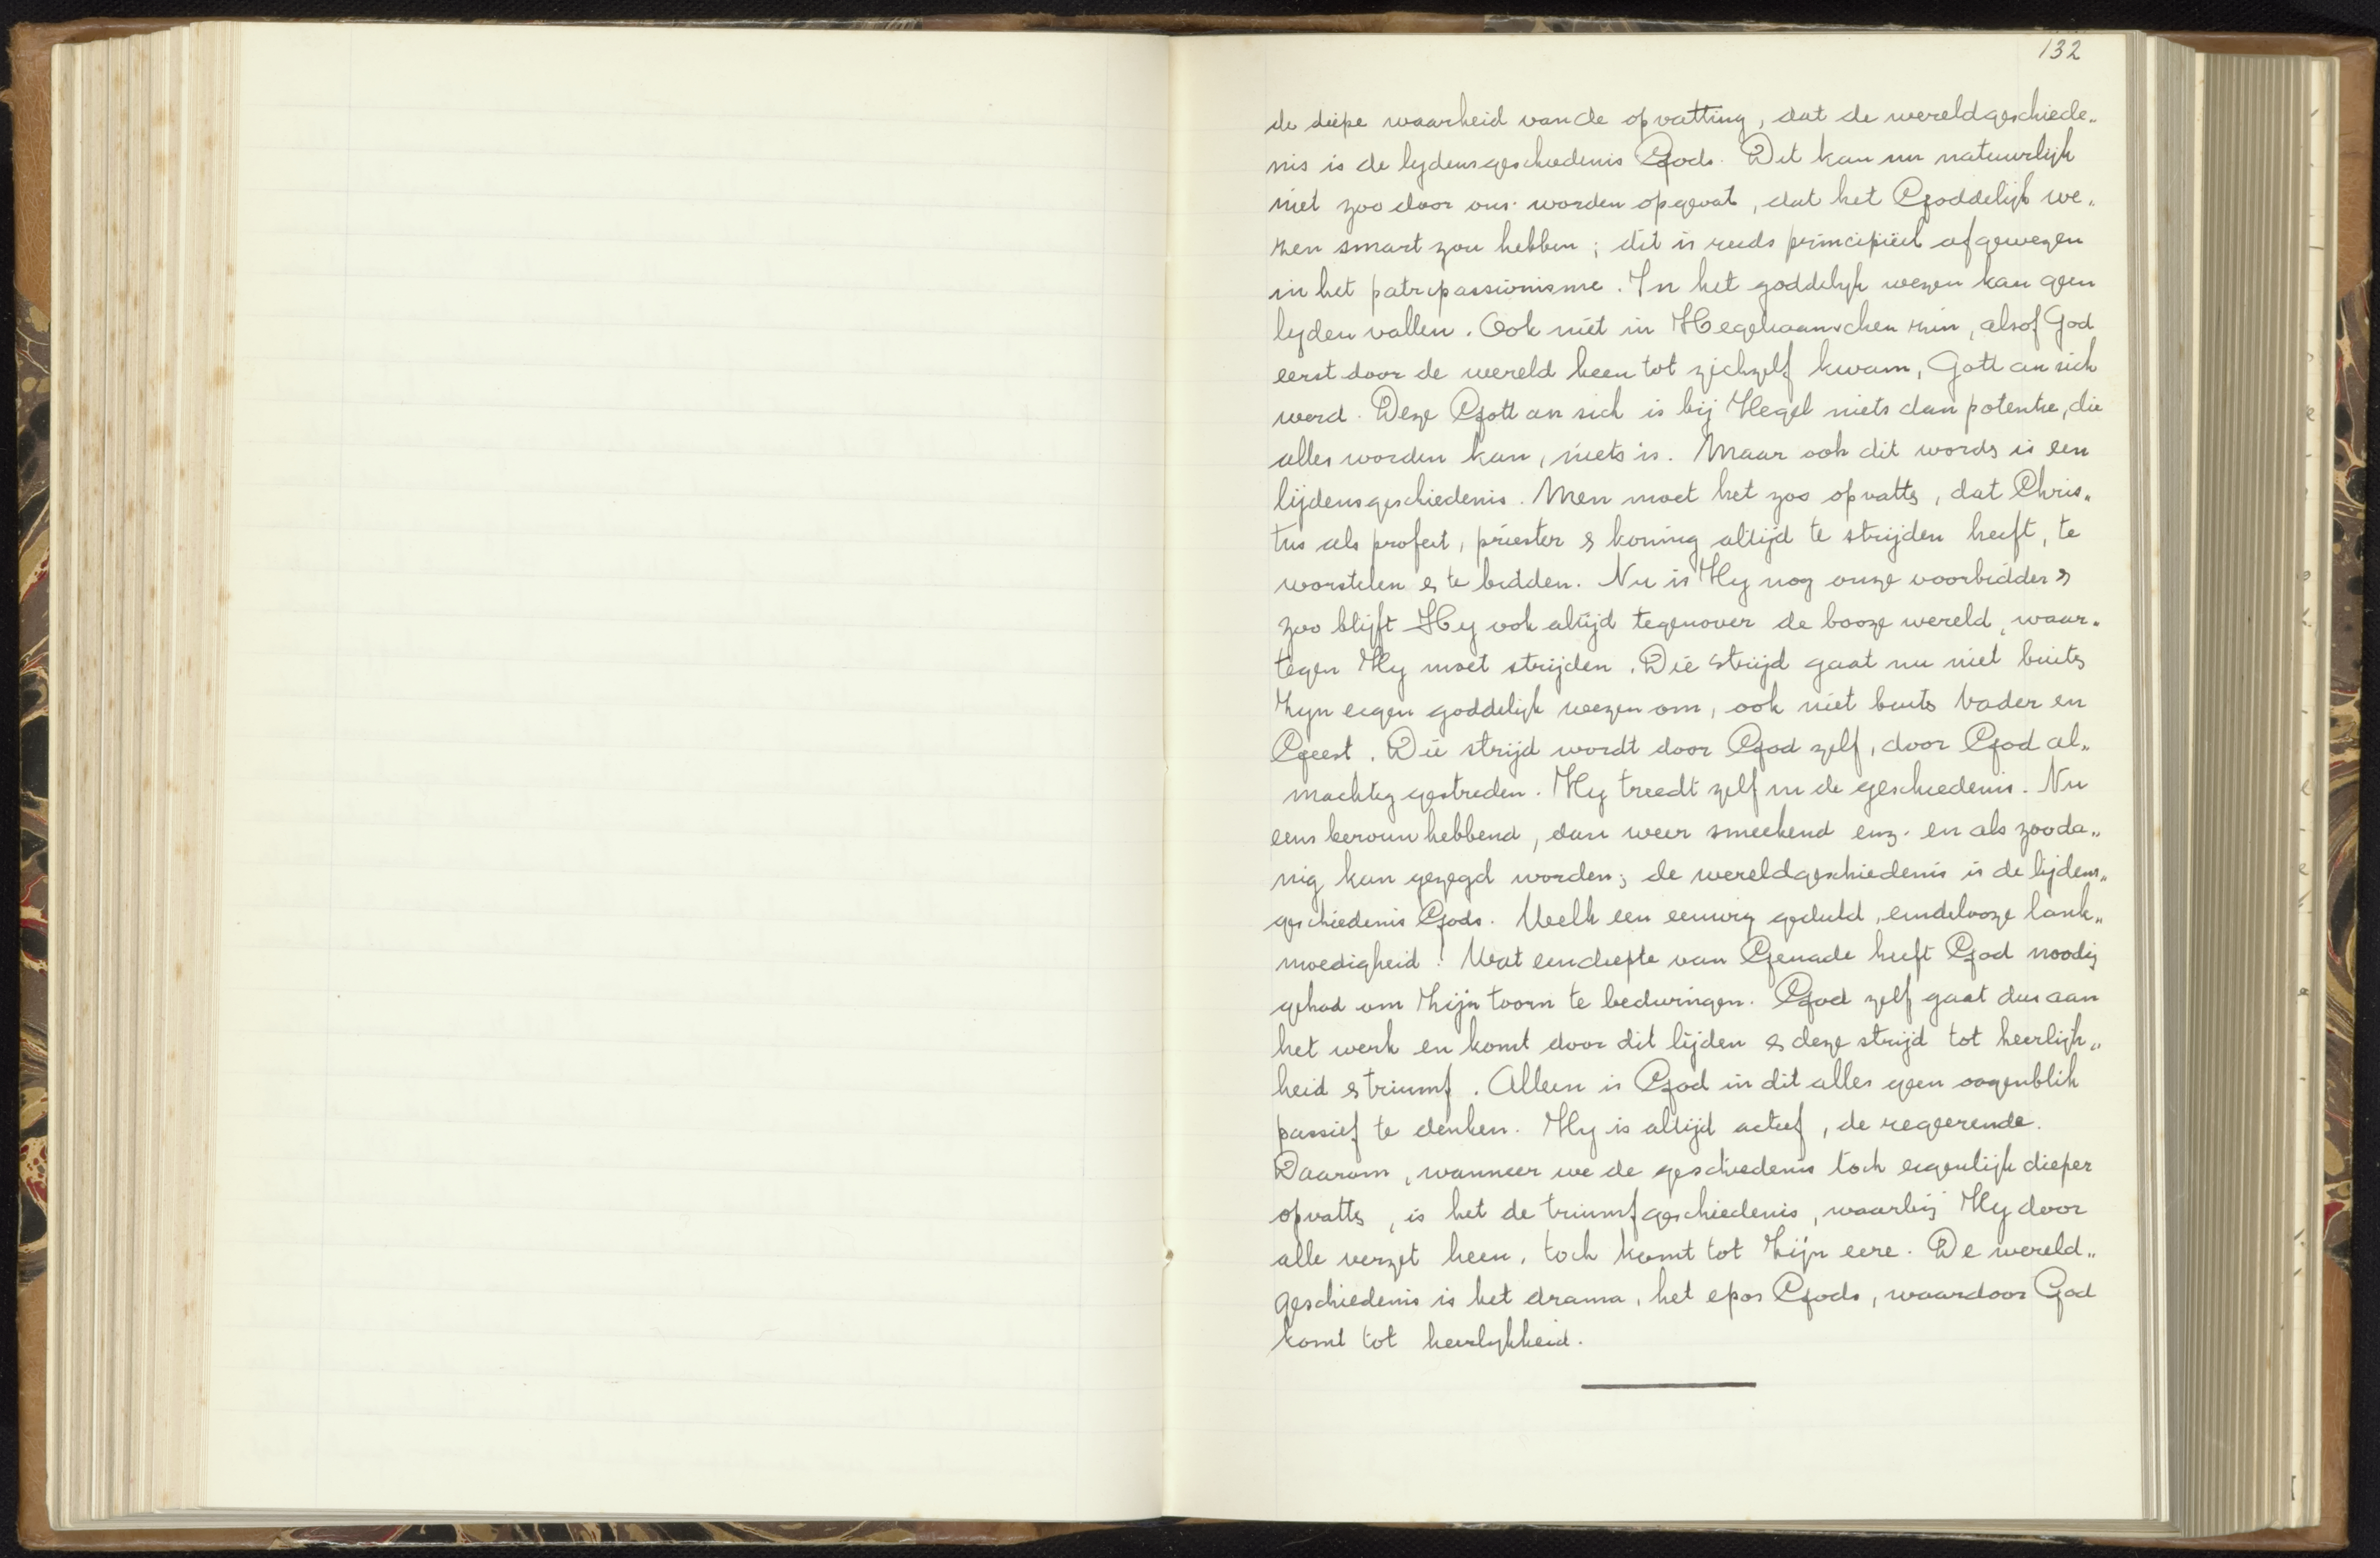 132
de diepe waarheid van de opvatting, dat de wereldgeschiede„
nis is de lydensgeschiedenis Gods. Dit kan nu natuurlijk
niet zoo door ons worden opgevat, dat het Goddelijk we„
zen smart zou hebben; dit is reeds principiëel afgewezen
in het patripassionisme. In het goddelyk wezen kan geen
lyden vallen. Ook niet in Hegeliaanschen zin, alsof God
eerst door de wereld heen tot zichzelf kwam, Gott an sich
werd. Deze Gott an sich is bij Hegel niets dan potentie, die
alles worden kan, niets is. Maar ook dit words is een
lijdensgeschiedenis. Men moet het zoo opvatts, dat Chris„
tus als profeet, priester & koning altijd te strijden heeft, te
worstelen & te bidden. Nu is Hy nog onze voorbidder &
zoo blijft Hy ook altijd tegenover de booze wereld, waar„
tegen Hy moet strijden. Die strijd gaat nu niet buits
Zyn eigen goddelijk wezen om, ook niet buits Vader en
Geest. Die strijd wordt door God zelf, door God al„
machtig gestreden. Hy treedt zelf in de geschiedenis. Nu
eens berouw hebbend, dan weer smeekend enz. en als zooda„
nig kan gezegd worden; de wereldgeschiedenis is de lijdens„
geschiedenis Gods. Welk een eeuwig geduld, eindelooze lank„
moedigheid! Wat een diepte van Genade heeft God noodig
gehad om Zijn toorn te bedwingen. God zelf gaat dus aan
het werk en komt door dit lijden & deze strijd tot heerlijk„
heid & triumf. Alleen is God in dit alles geen oogenblik
passief te denken. Hy is altijd actief, de regeerende.
Daarom, wanneer we de geschiedenis toch eigenlijk dieper
opvatts, is het de triumfgeschiedenis, waarbij Hy door
alle verzet heen, toch komt tot Zijn eere. De wereld„
geschiedenis is het drama, het epos Gods, waardoor God
komt tot heerlykheid.